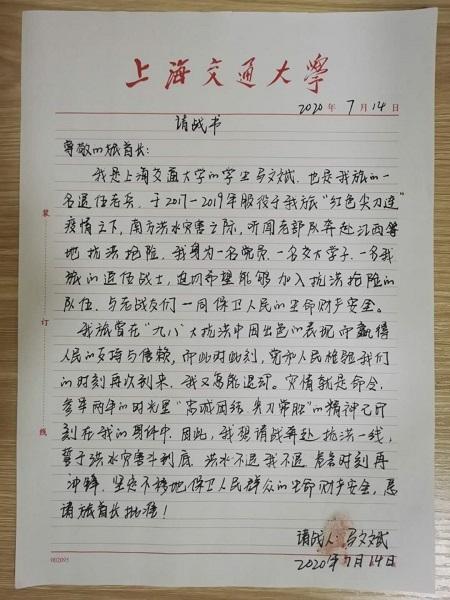 上海交通大学
2020年7月14日
请战书
尊敬的旅首长:
我是上海交通大学的学生马文斌,也是我旅的一
名退伍老兵,于2017-2019年服役于我旅“红色尖刀连”
疫情之下,南方洪水灾害之际,听闻老部队奔赴江西等
地抗洪抢险,我身为一名党员、一名交大学子、一名我
旅的退伍战士,迫切希望能够加入抗洪抢险的
队伍,与老战友们一同保卫人民的生命财产安全。
我旅曾在“九八”大抗洪中因出色的表现而赢得
人民的支持与信赖,而此时此刻,党和人民检验我们
的时刻再次到来,我又怎能退却。灾情就是命令,
参军两年的时光里“忠诚团结,尖刀常胜”的精神已印
刻在我的身体中,因此,我想请战奔赴抗洪一线,
誓于洪水灾害斗到底,洪水不退我不退,危急时刻再
冲锋,坚定不移地保卫人民群众的生命财产安全,恳
请旅首长批准!
请战人:马文斌
2020年7月14日
装
订
线